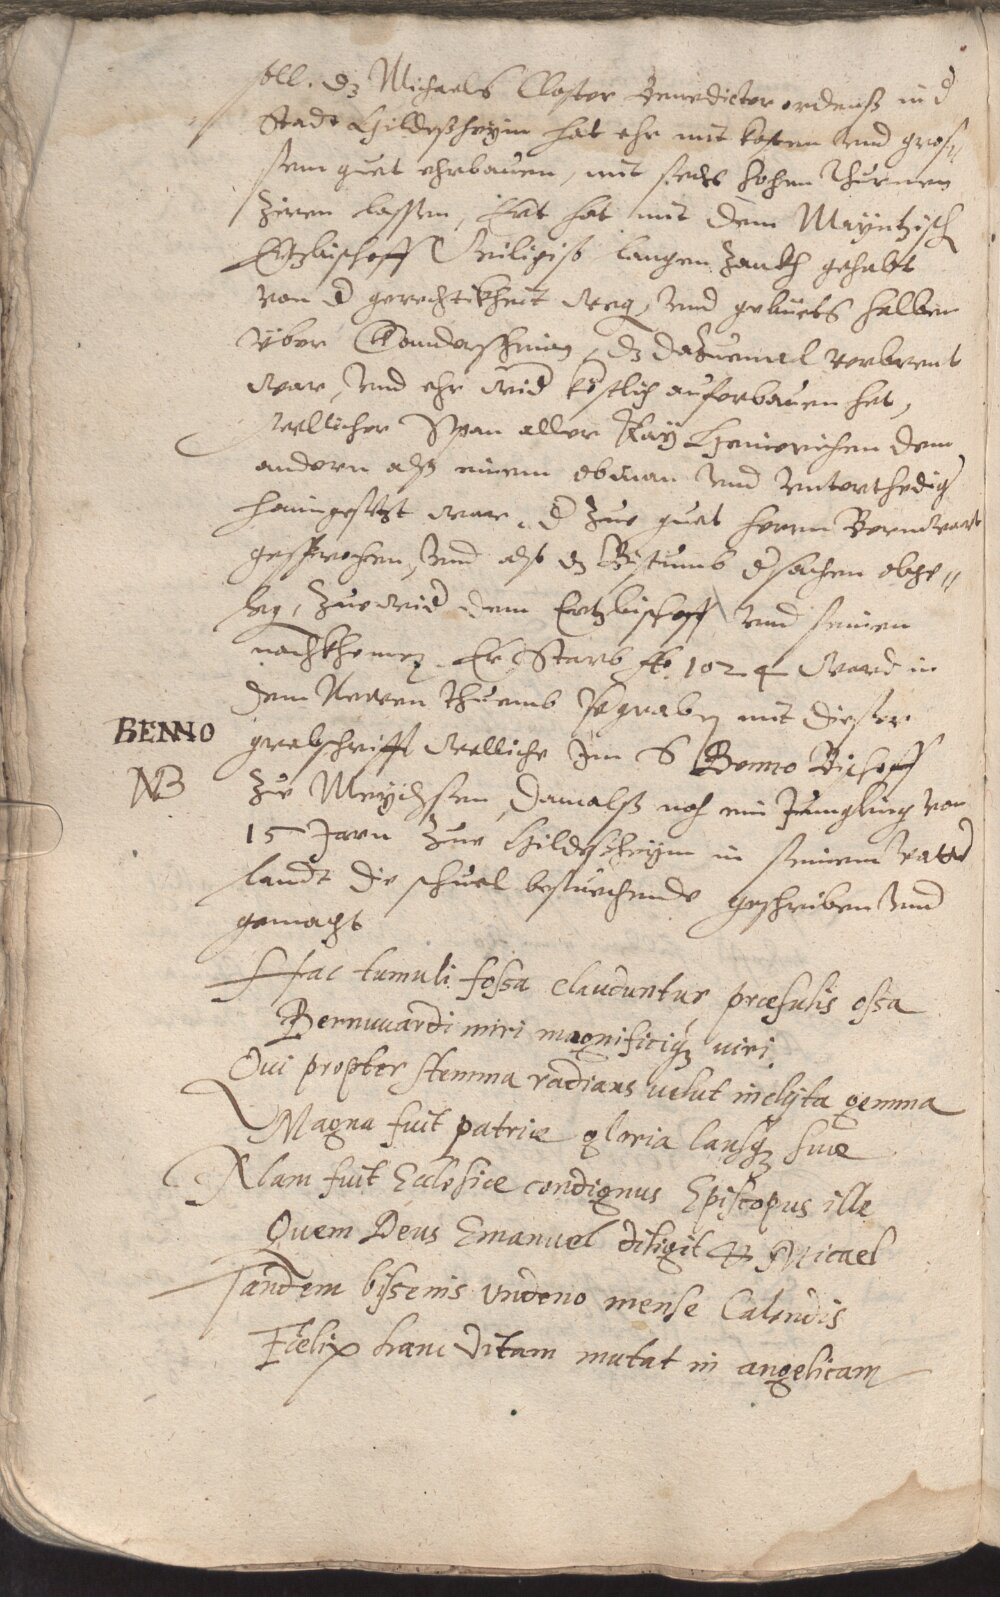 soll. dz Michaels Closter Benedicter ordenß in d
Stadt Hildeßheym hat ehr mit kosten vnd gros„
sem guet ehrbauen, mit sechs hohen Thurnen
ziren lassen, Er hat mit dem Mayntzisch
Ertzbischoff Viligiß langen Zankh gehabt
von d gerechtikheit weg, vnd gebiets halben
vber Gandersheim, dz dazuemal verbrent
war, vnd ehr wid köstlich auferbauen het,
wellicher Span aller Kay Heinrichen dem
andern alß einem obman vnd vnterthedig
heimgesetzt war, d zue guet herrn Bernward
gesprochen, vnd alß dz Bistumb d sachen obge„
leg, zuewid dem Ertzbischoff vnd seinen
nachkhomen. Er Starb 1024 ward in
dem Newen Thuemb begrabn mit dieser
BENNO grabschrifft welliche Im S Benno Bischoff
NB zue Meychsen, damalß noch ein Jungling von
15 Jarn zue Hildeßheym in seinem vatter
landt die schuel besuechende geschriben vnd
gemacht
Hac tumuli fossa clauduntur præsulis ossa
Bernuuardi miri magnificiq3 viri.
Qui propter stemma radians velut inclyta gemma
Magna fuit patriæ gloria lausq3 suæ
Nam fuit Ecclesiæ condignus Episcopus ille
Quem Deus Emanuel diligit et Micael
Tandem bissenis vndeno mense Calendis
Fœlix hanc vitam mutat in angelicam